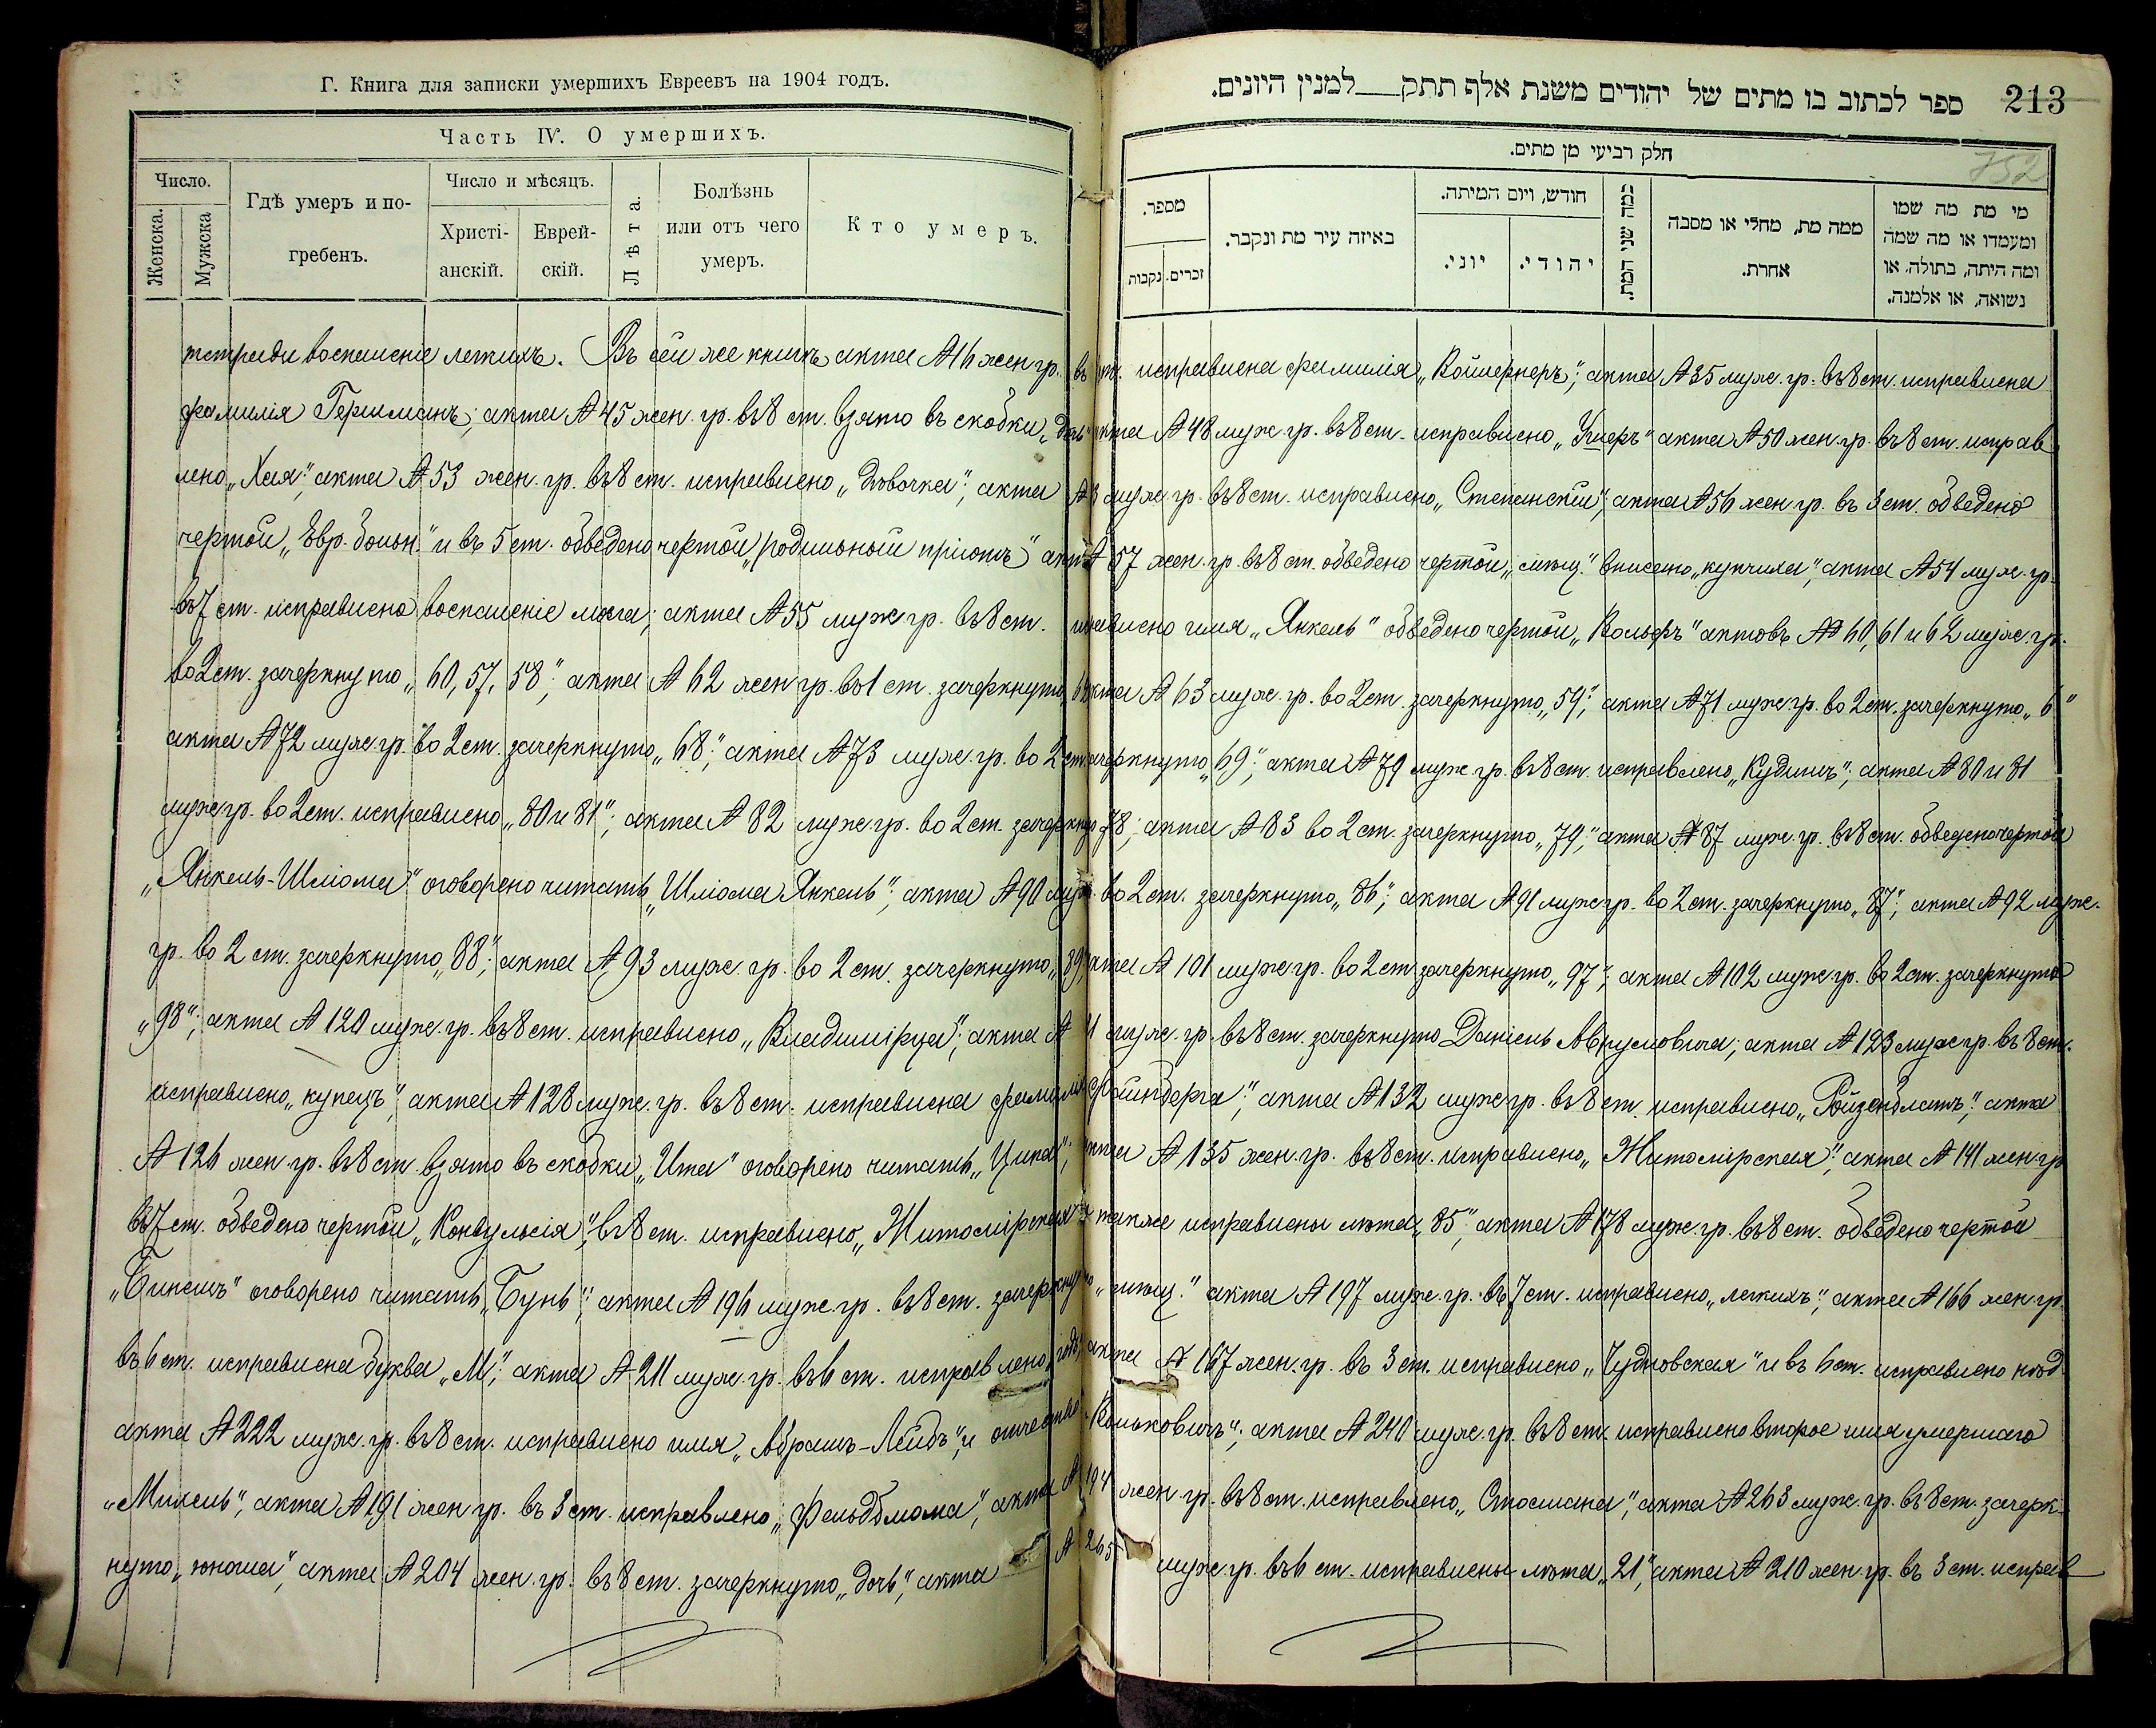 Г. Книга для записки умершихъ Евреевъ на 1904 годъ.
Часть IV. О умершихъ.
Число.
Женска.
Мужска
Гдѣ умеръ и по-
гребенъ.
Число и мѣсяцъ.
Христі-
анскій.
Еврей-
скій.
Лѣта.
Болѣзнь
или отъ чего
умеръ.
Кто умеръ.
213
ספר לכתוב בו מתים של יהודים משנת אלף תתק למנין היונים.
752
חלק רביעי מן מתים.
מספר.
זכרים.
נקבות
באיזה עיר מת ונקבר.
חודש, ויום המיתה.
יהודי.
יוני.
כמה שני המת.
ממה מת, מחלי או מסבה
אחרת.
מי מת מה שמו
ומעמדו או מה שמה
ומה היתה, בתולה, או
נשואה, או אלמנה.
тетради воспаленіе легкихъ. Въ сей же книгѣ акта №16 жен. гр. въ ст. исправлена фамилія „Койлернеръ“; акта №35 муж. гр. въ 8 ст. исправлена
фамилія Гершманъ; акта №45 жен. гр. въ 8 ст. взято въ скобки „дочь“ акта №48 муж. гр. въ 8 ст. исправлено „Ушеръ“ акта №50 жен. гр. въ 8 ст. исправ
лено „Хая“; акта №53 жен. гр. въ 8 ст. исправлено „Дѣвочка“; акта № муж. гр. въ 8 ст. исправлено „Степанскій“; акта №56 жен. гр. въ 3 ст. обведено
чертой „Евр. больн.“ и въ 5 ст. обведено чертой „родильной пріютъ“ акта № 57 жен. гр. въ 8 ст. обведено чертой „мѣщ.“ внисено „купчиха“, акта №54 муж. гр.
въ 7 ст. исправлено воспаленіе мозга; акта №55 муж. гр. въ 8 ст. исправлено имя „Янкель“ обведено чертой „Вольфъ“ актовъ №№ 60, 61 и 62 муж. гр.
во 2 ст. зачеркнуто „60, 57, 58“; акта №62 жен. гр. въ 1 ст. зачеркнуто акта №63 муж. гр. во 2 ст. зачеркнуто „59“; акта №71 муж. гр. во 2 ст. зачеркнуто „6“
акта №72 муж. гр. во 2 ст. зачеркнуто „68“; акта №73 муж. гр. во 2 ст. зачеркнуто „69“; акта №79 муж. гр. въ 8 ст. исправлено „Кудишъ“; акта №80 и 81
муж. гр. во 2 ст. исправлено „80 и 81“; акта №82 муж. гр. во 2 ст. зачеркнуто 78; акта №83 во 2 ст. зачеркнуто „79“; акта №87 муж. гр. въ 8 ст. обведено чертой
„Янкель-Шліома“ оговорено читать „Шліома Янкель“; акта №90 муж. во 2 ст. зачеркнуто „86“; акта №91 муж. гр. во 2 ст. зачеркнуто „87“; акта №92 муж.
гр. во 2 ст. зачеркнуто „88“; акта №93 муж. гр. во 2 ст. зачеркнуто „89“ акта №101 муж. гр. во 2 ст. зачеркнуто „97“; акта №102 муж. гр. во 2 ст. зачеркнуто
„98“; акта №120 муж. гр. въ 8 ст. исправлено „Владимірца“; акта № муж. гр. въ 8 ст. зачеркнуто Даніель Аврумовича; акта №123 муж. гр. въ 8 ст.
исправлено „купецъ“; акта №128 муж. гр. въ 8 ст. исправлена фамилія „Файнберга“; акта №132 муж. гр. въ 8 ст. исправлено „Ройзенблатъ“; акта
№126 жен. гр. въ 8 ст. взято въ скобки „Ита“ оговорено читать „Ципа“; акта №135 жен. гр. въ 8 ст. исправлено „Житомірская“; акта №141 жен. гр
въ 7 ст. обведено чертой „Конвульсія“; въ 8 ст. исправлено „Житомірская“ и также исправлены лѣта „85“; акта №178 муж. гр. въ 8 ст. обведено чертой
„Бинемъ“ оговорено читать „Бунь“; акта №196 муж. гр. въ 8 ст. зачеркнуто „мѣщ.“ акта №197 муж. гр. въ 7 ст. исправлено „легкихъ“; акта №166 жен. гр.
въ 6 ст. исправлена буква „М“; акта №211 муж. гр. въ 6 ст. исправлено „годъ“; акта №167 жен. гр. въ 3 ст. исправлено „Чудновская“ и въ 6 ст. исправлено
акта №222 муж. гр. въ 8 ст. исправлено имя „Абрамъ-Лейбъ“, и отчество „Коньковичъ“; акта №240 муж. гр. въ 8 ст. исправлено второе имя умершаго
„Михель“, акта №191 жен. гр. въ 3 ст. исправлено „Фельдмана“, акта №194 жен. гр. въ 8 ст. исправлено „Стосмана“, акта №263 муж. гр. въ 8 ст. зачерк-
нуто „юноша“, акта №204 жен. гр. въ 8 ст. зачеркнуто „дочь“, акта №265 муж. гр. въ 6 ст. исправлены лѣта „21“, акта №210 жен. гр. въ 3 ст. исправ